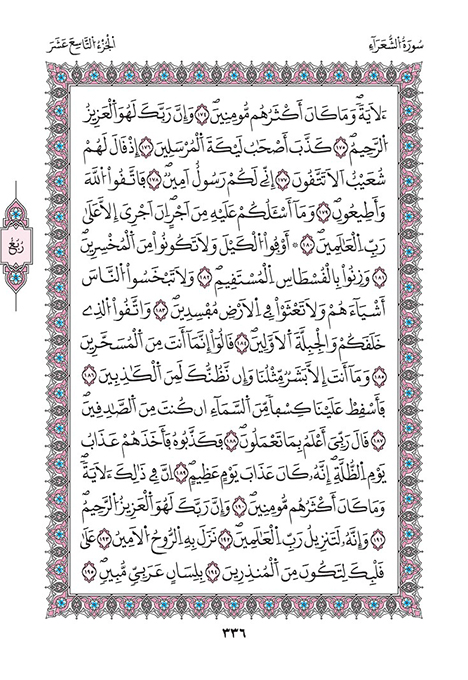 سُورَةُ الشُّعَرَاءِ
الجُزْءُ التَّاسِعَ عَشَرَ
ءَلَايَةٗۖ وَمَا كَانَ أَكْثَرُهُم مُّومِنِينَۖ ١٧٤ وَإِنَّ رَبَّكَ لَهُوَ اَلْعَزِيزُ
اُلرَّحِيمُۖ ١٧٥ كَذَّبَ أَصْحَٰبُ لَيْكَةَ اَلْمُرْسَلِينَ ١٧٦ إِذْ قَالَ لَهُمْ
شُعَيْبٌ اَلَا تَتَّقُونَ ١٧٧ إِنِّے لَكُمْ رَسُولٌ أَمِينٞ ١٧٨ فَاتَّقُوا اُللَّهَ
وَأَطِيعُونِۖ ١٧٩ وَمَا أَسْـَٔلُكُمْ عَلَيْهِ مِنَ اَجْرٍ اِنَ اَجْرِيَ إِلَّا عَلَىٰ
رَبِّ اِلْعَٰلَمِينَۖ ١٨٠ ۞ أَوْفُوا اُلْكَيْلَ وَلَا تَكُونُوا مِنَ اَلْمُخْسِرِينَ
١٨١ وَزِنُوا بِالْقُسْطَاسِ اِلْمُسْتَقِيمِۖ ١٨٢ وَلَا تَبْخَسُوا اُلنَّاسَ
أَشْيَآءَهُمْ وَلَا تَعْثَوْا فِے اِلَارْضِ مُفْسِدِينَۖ ١٨٣ وَاتَّقُوا اُلذِے
خَلَقَكُمْ وَالْجِبِلَّةَ اَلَاوَّلِينَۖ ١٨٤ قَالُوا إِنَّمَا أَنتَ مِنَ اَلْمُسَحَّرِينَ
١٨٥ وَمَا أَنتَ إِلَّا بَشَرٞ مِّثْلُنَا وَإِن نَّظُنُّكَ لَمِنَ اَلْكَٰذِبِينَۖ ١٨٦
فَأَسْقِطْ عَلَيْنَا كِسْفاٗ مِّنَ اَلسَّمَآءِ ان كُنتَ مِنَ اَلصَّٰدِقِينَۖ
١٨٧ قَالَ رَبِّيَ أَعْلَمُ بِمَا تَعْمَلُونَۖ ١٨٨ فَكَذَّبُوهُ فَأَخَذَهُمْ عَذَابُ
يَوْمِ اِلظُّلَّةِۖ إِنَّهُۥ كَانَ عَذَابَ يَوْمٍ عَظِيمٍۖ ١٨٩ اِنَّ فِے ذَٰلِكَ ءَلَايَةٗۖ
وَمَا كَانَ أَكْثَرُهُم مُّومِنِينَۖ ١٩٠ وَإِنَّ رَبَّكَ لَهُوَ اَلْعَزِيزُ اُلرَّحِيمُۖ
١٩١ وَإِنَّهُۥ لَتَنزِيلُ رَبِّ اِلْعَٰلَمِينَۖ ١٩٢ نَزَلَ بِهِ اِلرُّوحُ اُلَامِينُ ١٩٣ عَلَىٰ
قَلْبِكَ لِتَكُونَ مِنَ اَلْمُنذِرِينَ ١٩٤ بِلِسَانٍ عَرَبِيّٖ مُّبِينٖۖ ١٩٥
رُبُعٌ
٣٣٦